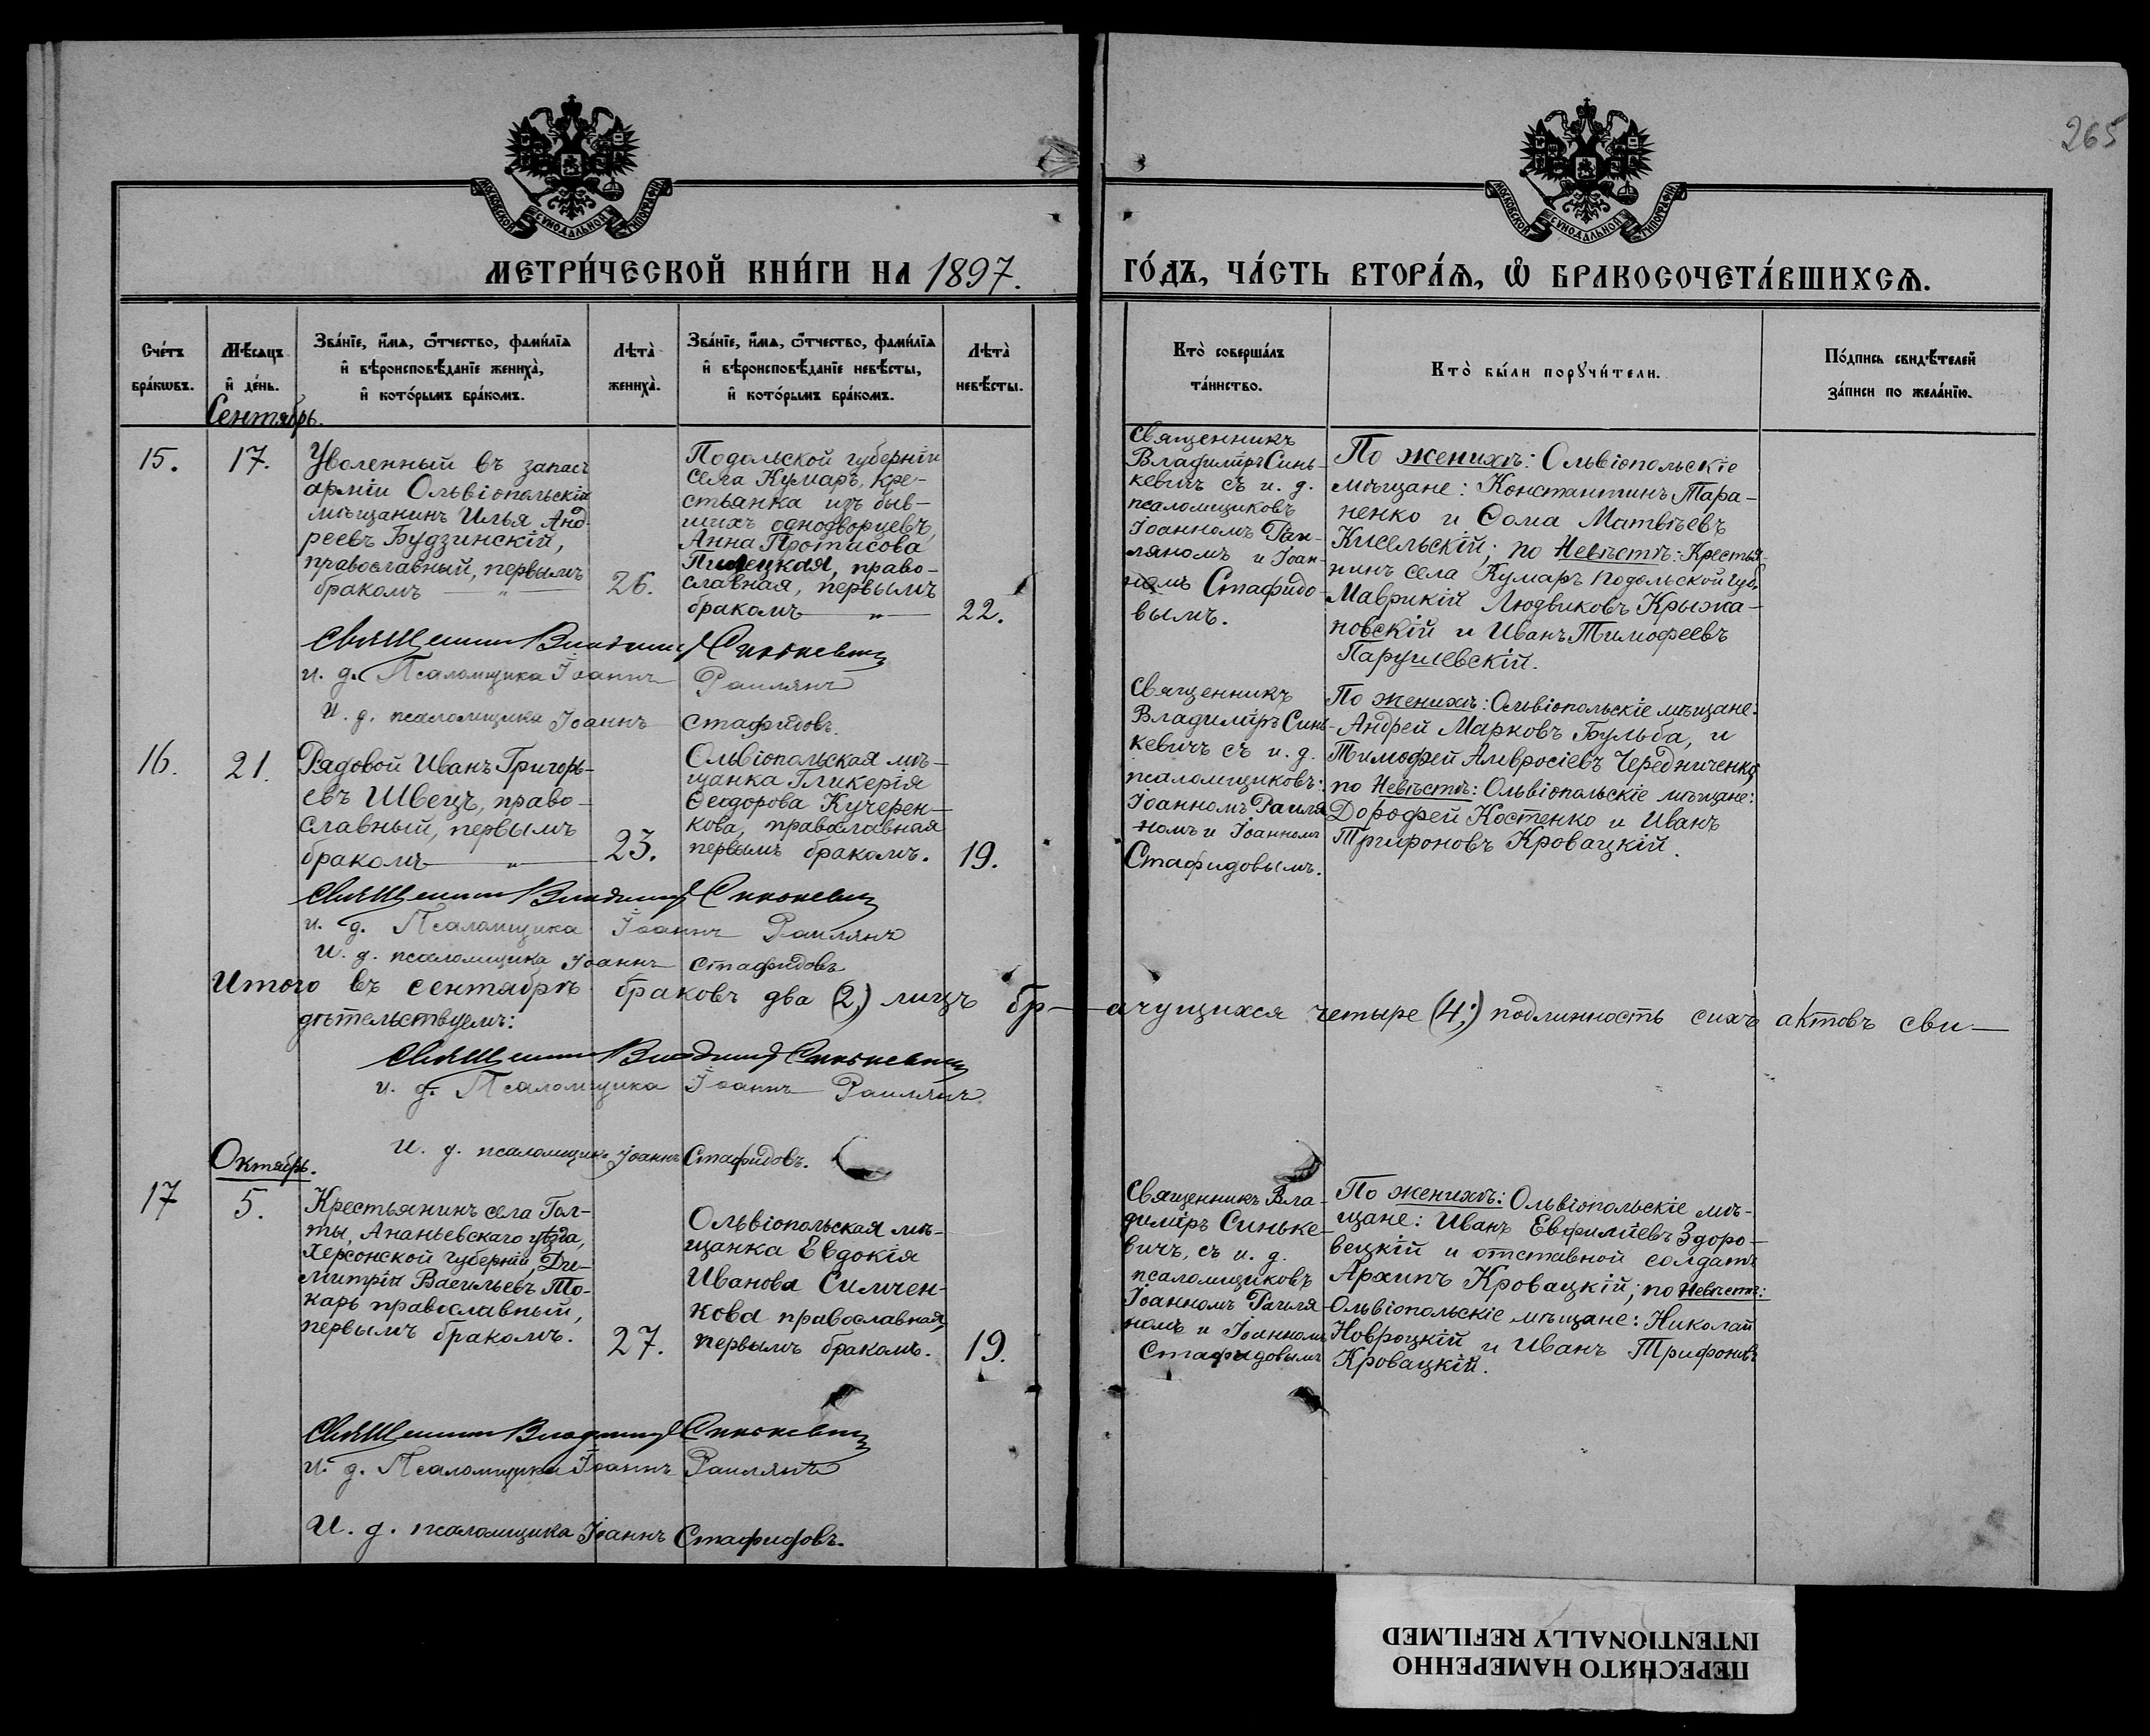 265
МОСКОВСКОЙ СУНОДАЛЬНОЙ ТИПОГРАФІИ
МОСКОВСКОЙ СУНОДАЛЬНОЙ ТИПОГРАФІИ
МЕТРИ́ЧЕСКОЙ КНИ́ГИ НА 1897.
ГО́ДЪ, ЧА́СТЬ ВТОРА́Ѧ, Ѽ БРАКОСОЧЕТА́ВШИХСѦ.
Сче́тъ
бра́кѡвъ.
Мѣ́сяцъ
и де́нь.
Зва́нїе, и́мѧ, ѻ́тчество, фами́лїѧ
и вѣроисповѣ́данїе жениха̀,
и кото́рымъ бра́комъ.
Лѣта̀
жениха̀.
Зва́нїе, и́мѧ, ѻ́тчество, фами́лїѧ
и вѣроисповѣ́данїе невѣ́сты,
и кото́рымъ бра́комъ.
Лѣта̀
невѣ́сты.
Кто̀ соверша́лъ
та́инство.
Кто̀ бы́ли порꙋчи́тели.
По́дпись свидѣ́телей
за́писи по жела́нїю.
Сентябрь.
15.
17.
Уволенный въ запасъ
арміи Ольвіопольскій
мѣщанинъ Илья Анд-
реевъ Будзинскій,
православный, первымъ
бракомъ — " —
26.
Подольской губерніи
села Кумаръ, кре-
стьянка изъ быв-
шихъ однодворцевъ,
Анна Протасова
Пилецкая, право-
славная, первымъ
бракомъ " —
22.
Священникъ
Владиміръ Синь-
кевичъ съ и. д.
псаломщиковъ
Іоанномъ Раи-
ляномъ и Іоан-
номъ Стафидо-
вымъ.
По женихѣ: Ольвіопольскіе
мѣщане: Константинъ Тара-
ненко и Ѳома Матвѣевъ
Кисельскій; по Невѣстѣ: Крестья-
нинъ села Кумаръ Подольской губ.
Маврикій Людвиковъ Крыжа-
новскій и Иванъ Тимофеевъ
Парушевскій.
Священникъ Владиміръ Синькевичъ
и. д. Псаломщика Іоаннъ Раилянъ
И. д. псаломщика Іоаннъ Стафидовъ.
16.
21.
Рядовой Иванъ Григорь-
евъ Швецъ, право-
славный, первымъ
бракомъ — " —
23.
Ольвіопольская мѣ-
щанка Гликерія
Ѳеодорова Кучерен-
кова, православная
первымъ бракомъ.
19.
Священникъ
Владиміръ Синь-
кевичъ съ и. д.
псаломщиковъ:
Іоанномъ Раиля-
номъ и Іоанномъ
Стафидовымъ.
По женихѣ: Ольвіопольскіе мѣщане:
Андрей Марковъ Бульба, и
Тимофей Амвросіевъ Чередниченко,
по Невѣстѣ: Ольвіопольскіе мѣщане:
Дорофей Костенко и Иванъ
Трифоновъ Кровацкій.
Священникъ Владиміръ Синькевичъ
и. д. Псаломщика Іоаннъ Раилянъ
И. д. псаломщика Іоаннъ Стафидовъ
Итого въ сентябрѣ браковъ два (2,) лицъ бр-ачущихся четыре (4;) подлинность сихъ актовъ сви-
дѣтельствуемъ:
Священникъ Владиміръ Синькевичъ
и. д. Псаломщика Іоаннъ Раилянъ
И. д. псаломщика Іоаннъ Стафидовъ.
Октябрь.
17
5.
Крестьянинъ села Гол-
ты, Ананьевскаго уѣзда,
Херсонской губерніи, Ди-
митрій Васильевъ То-
карь православный,
первымъ бракомъ.
27.
Ольвіопольская мѣ-
щанка Евдокія
Иванова Симчен-
кова православная,
первымъ бракомъ.
19.
Священникъ Вла-
диміръ Синьке-
вичъ, съ и. д.
псаломщиковъ
Іоанномъ Раиля-
номъ и Іоанномъ
Стафидовымъ
По женихѣ: Ольвіопольскіе мѣ-
щане: Иванъ Евфиміевъ Здоро-
вецкій и отставной солдатъ
Архипъ Кровацкій; по Невѣстѣ:
Ольвіопольскіе мѣщане: Николай
Новроцкій и Иванъ Трифоновъ
Кровацкій.
Священникъ Владиміръ Синькевичъ
и. д. Псаломщика Іоаннъ Раилянъ
И. д. псаломщика Іоаннъ Стафидовъ.
ПЕРЕСНЯТО НАМЕРЕННО
INTENTIONALLY REFILMED